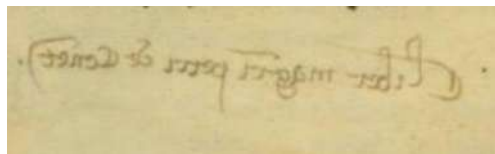 Liber magri petri de Conet